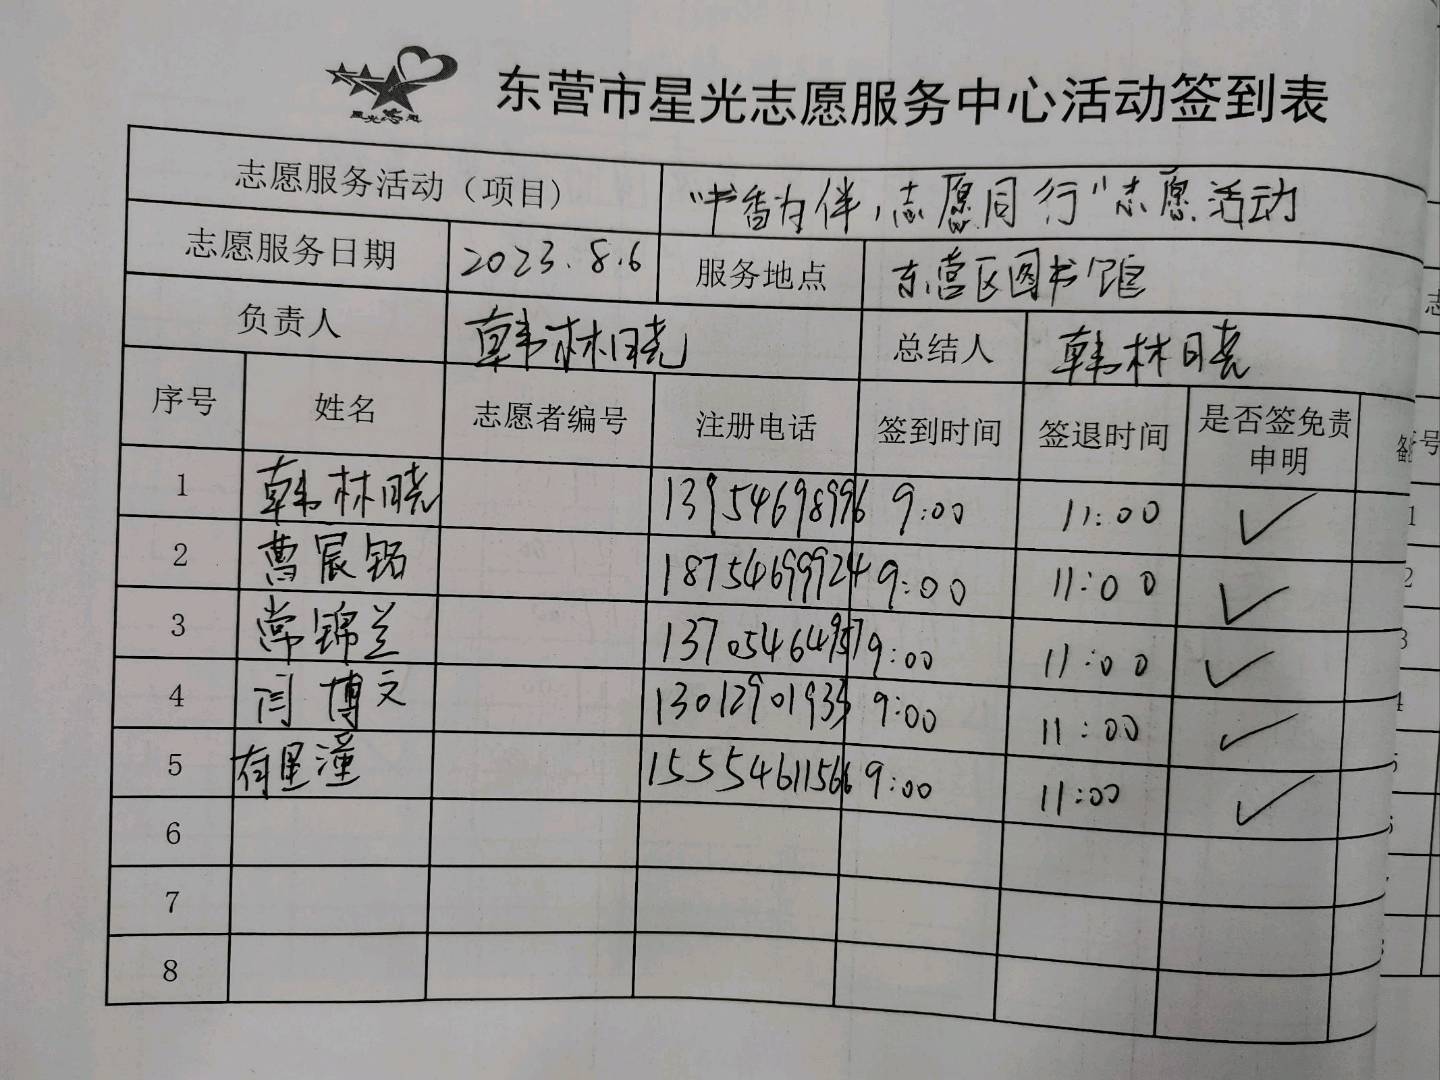 星光志愿
东营市星光志愿服务中心活动签到表
志愿服务活动（项目） “书香为伴，志愿同行”志愿活动
志愿服务日期 2023.8.6 服务地点 东营区图书馆
负责人 韩林晓 总结人 韩林晓
序号 姓名 志愿者编号 注册电话 签到时间 签退时间 是否签免责申明 备
1 韩林晓 13954698996 9:00 11:00 ✓
2 曹宸铭 18754699924 9:00 11:00 ✓
3 常锦兰 13705464957 9:00 11:00 ✓
4 闫博文 13012901935 9:00 11:00 ✓
5 15554611566 9:00 11:00 ✓
6
7
8